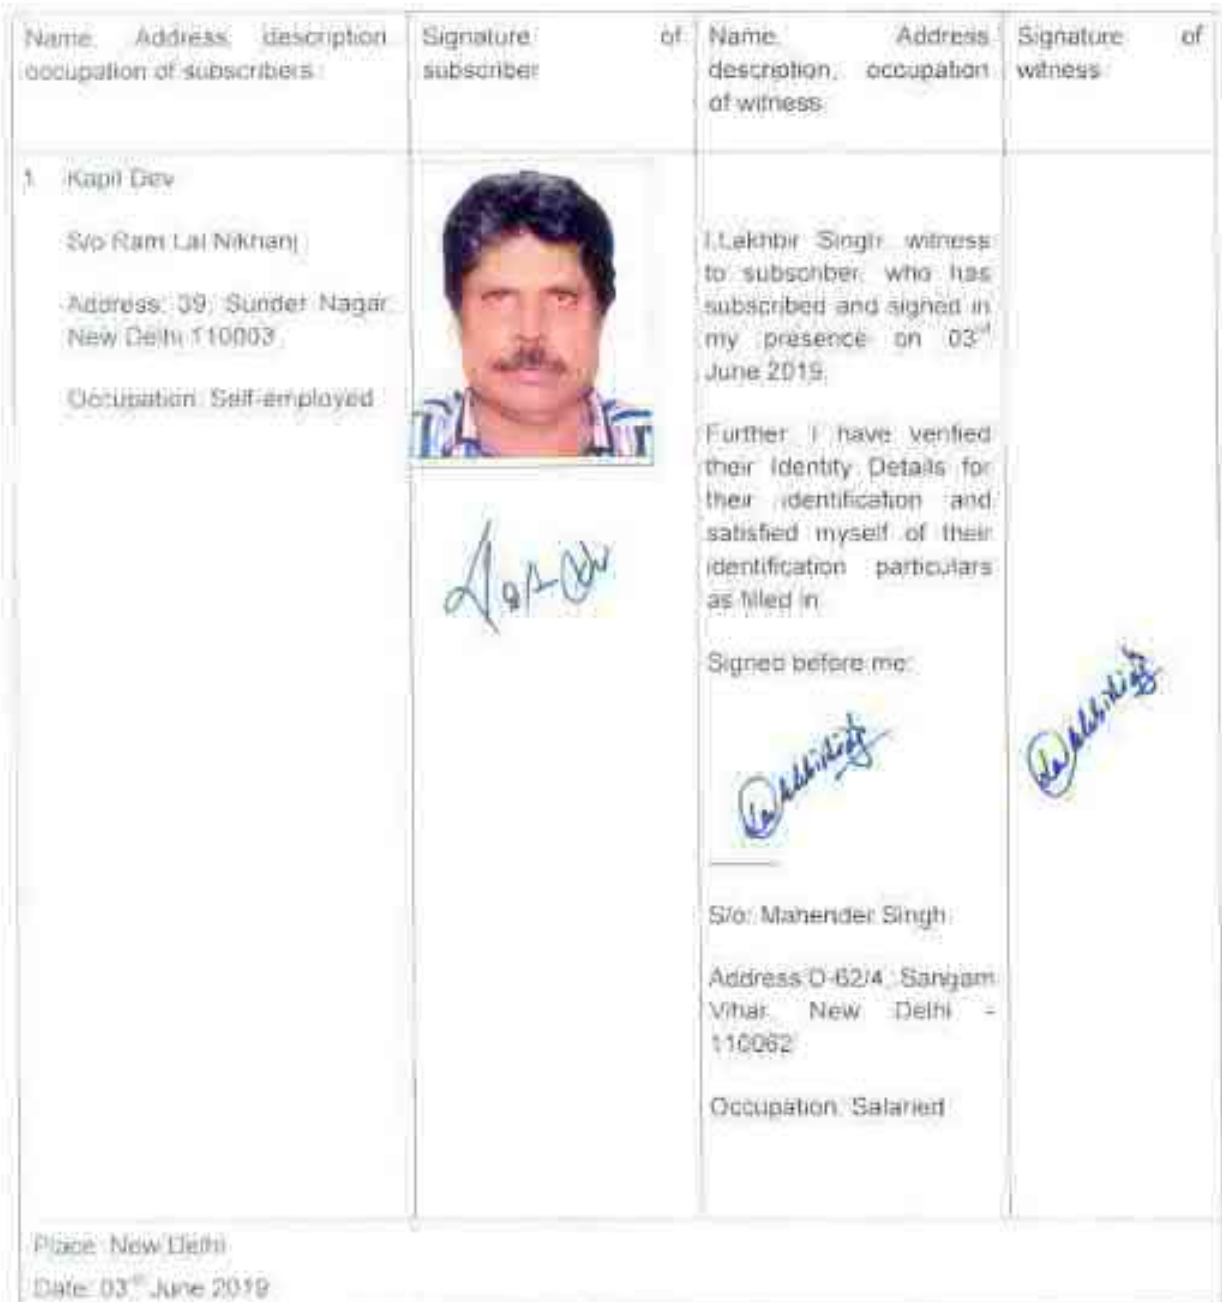 Name, Address, description
occupation of subscribers
Signature of
subscriber
Name, Address
description, occupation
of witness
Signature of
witness
1. Kapil Dev
S/o Ram Lal Nikhanj
Address: 39, Sunder Nagar,
New Delhi 110003
Occupation: Self-employed
I,Lakhbir Singh witness
to subscriber, who has
subscribed and signed in
my presence on 03rd
June 2019.
Further I have verified
their Identity Details for
their identification and
satisfied myself of their
identification particulars
as filled in
Signed before me:
S/o: Mahender Singh
Address D-62/4, Sangam
Vihar, New Delhi -
110062
Occupation: Salaried
Place: New Delhi
Date: 03rd June 2019